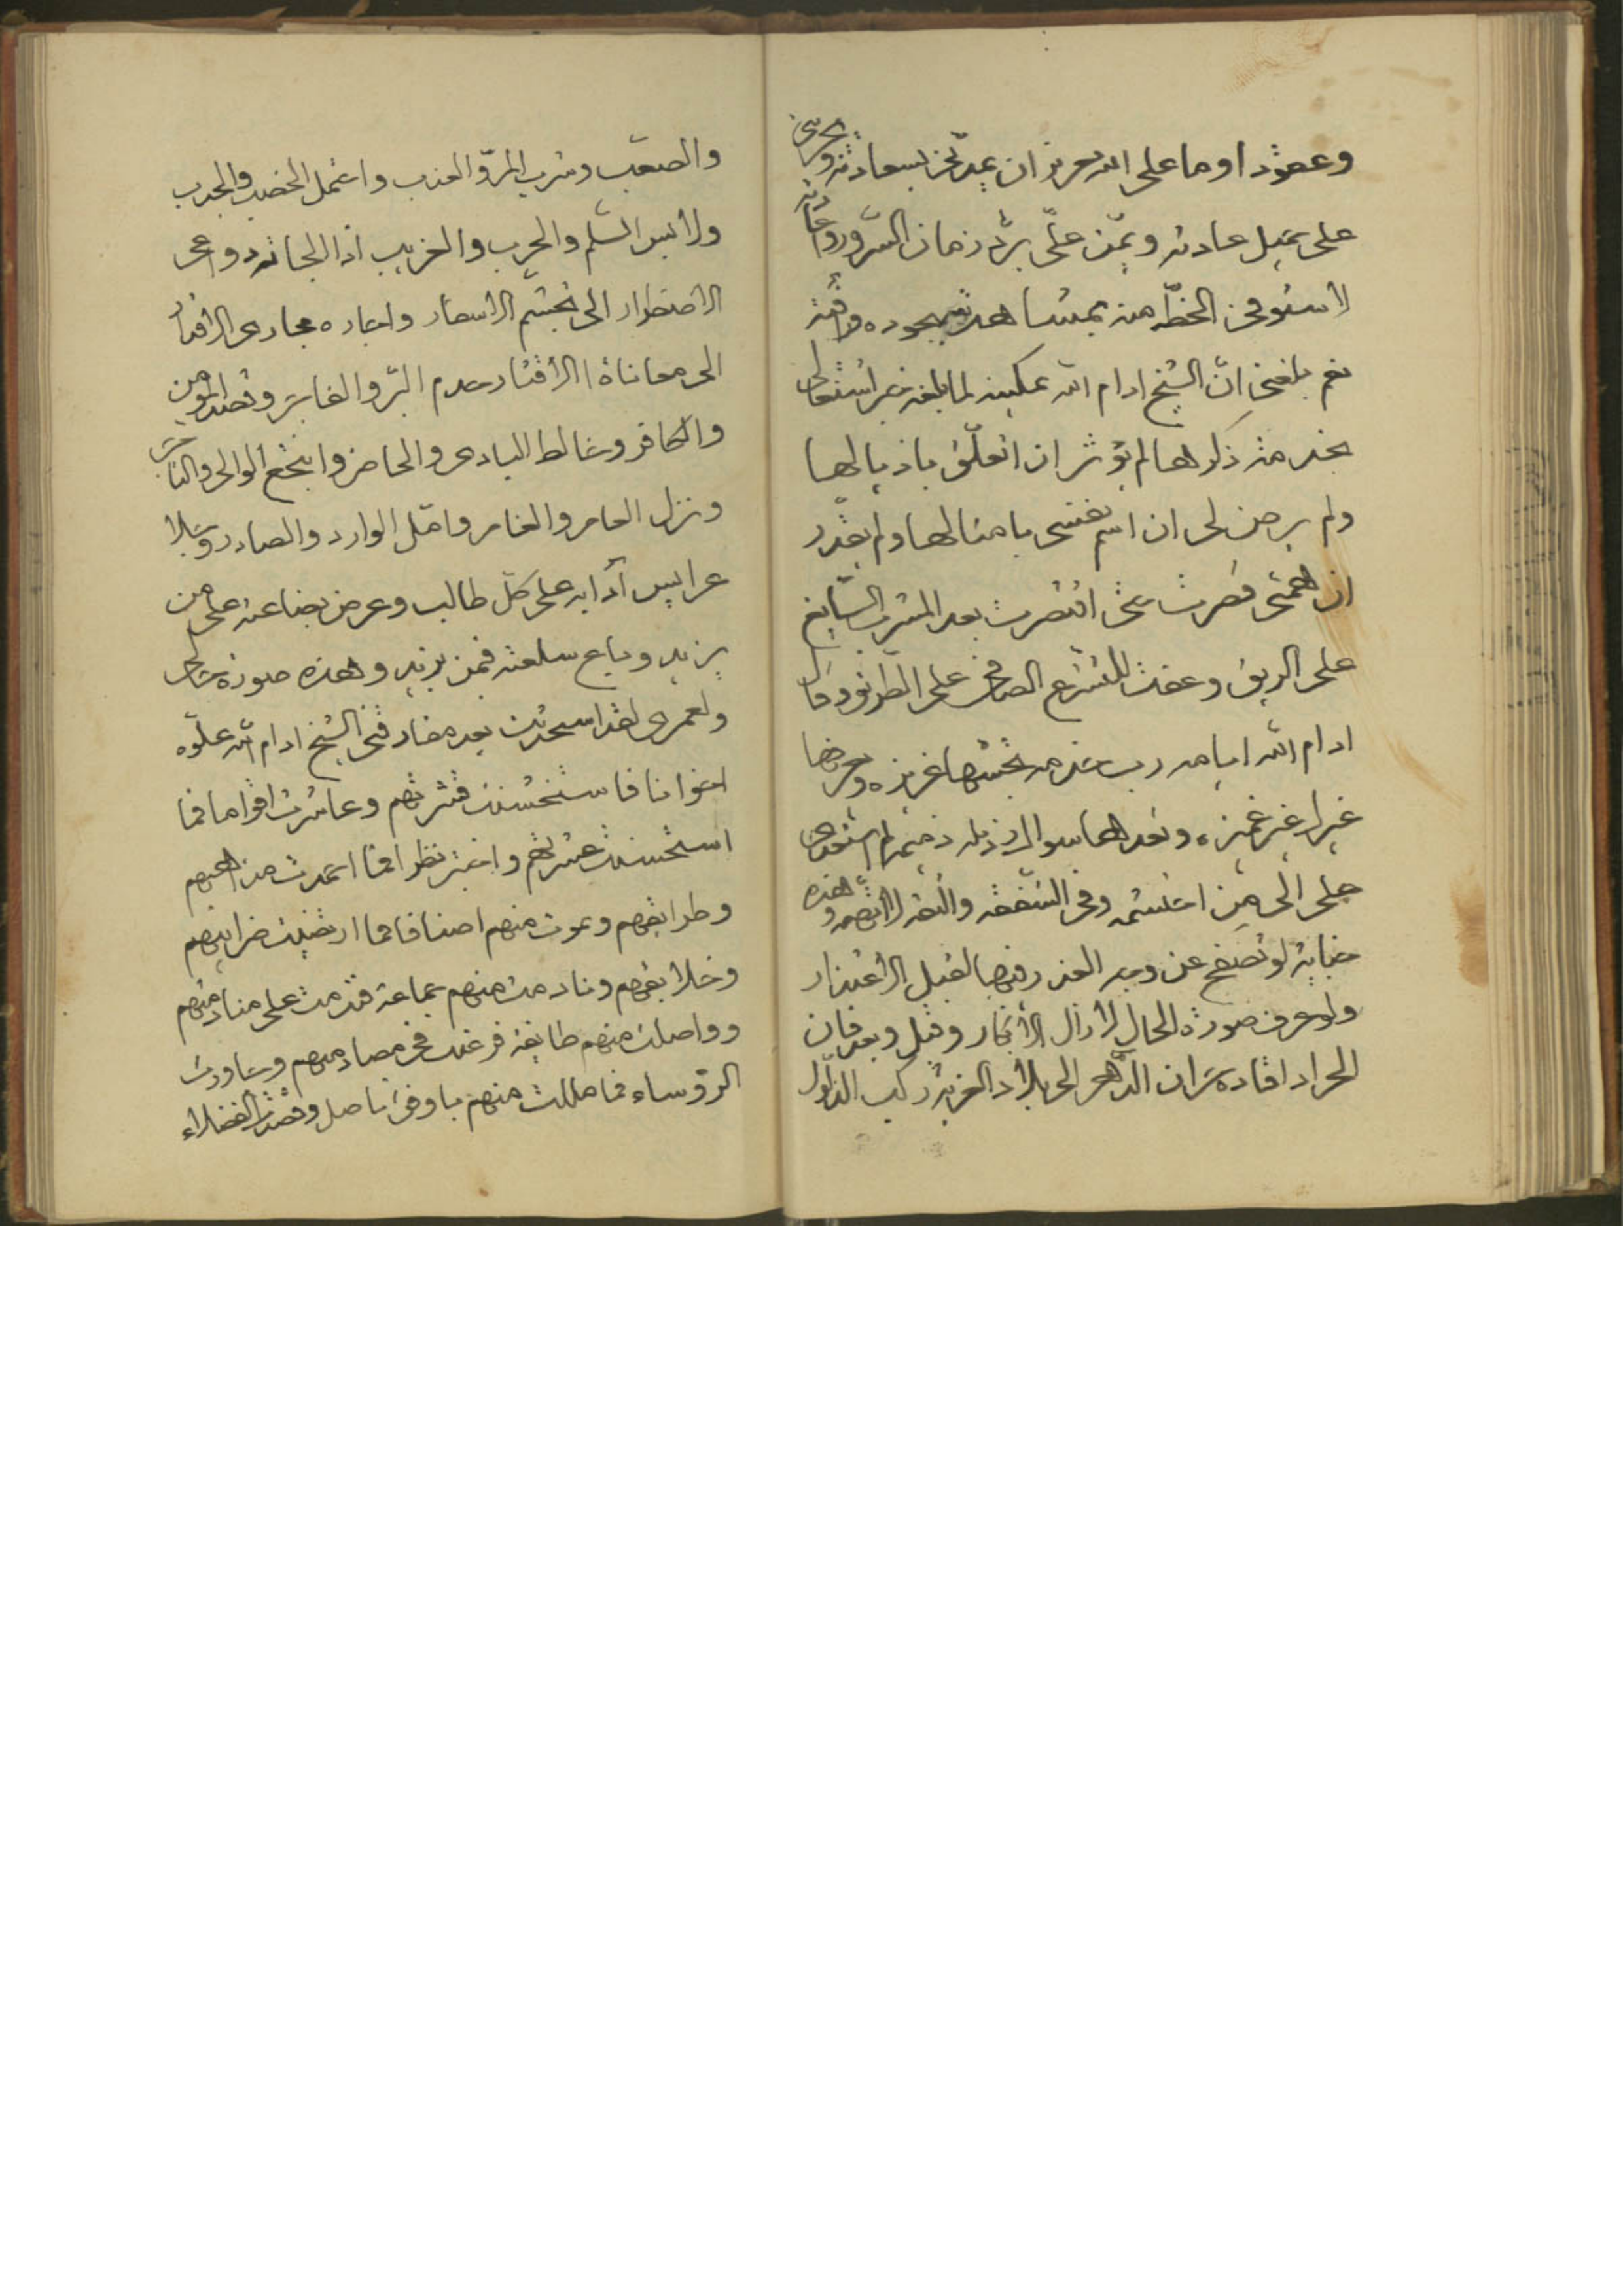 وعهودا وما على الله بعزيز ان يمدّني بسعادته ويجرينى
على جميل عادته ويمّن علىّ بردّ زمان السّرور واعادته
لاستوفى الحظّ منه بمشاهدته بجوده ورافته
نعم بلغنى انّ الشيخ ادام الله تمكينه لما بلغه خبر اشتغالى
بخدمة ذكرها لم يؤثر ان اتعلّق باذيالها
ولم يرض لى ان اسم نفسى بامثالها ولم يقدّر
ان همتى قصرت حتى اقتصرت بعد المشرب السّايغ
على الريق وعفت المشرع الصافى على الطريق وقال
ادام الله ايامه رب خدمة تحسبها غريزه وتعرضها
غير عزيزه وتعدها سوالا وذلة ذميمه لم استعدى
على الى من احتشمه وفى الشفقه والثقه لا اتهمه وهذه
جناية لو تصفح عن وجه العذر فيها لقبل الاعتذار
ولو عرف صورة الحال لازال الانكار وقبل وبعد فان
الحر اذا قاده حران الدّهر الى بلاد الغربة ركب الذلول
والصعب وشرب المرّ والعذب واحتمل الخصب والجدب
ولابس السّلم والحرب والغريب اذا الجاته دواعى
الاضطرار الى تجشّم الاسفار واجاره مجارى الاقدار
الى معاناة الاقتار خدم البرّ والفاجر وقصد المومن
والكافر وخالط البادى والحاضر وانتجع الوالى والتاجر
ونزل العامر والغامر وامّل الوارد والصادر وجلا
عرايس آدابه على كلّ طالب وعرض بضاعته على من
يزيد وباع سلعته فيمن يزيد وهذه صورة حالى
ولعمرى لقد استحدثت بعد مفارقتى الشيخ ادام الله علوّه
اخوانا فاستخشنت قشرتهم وعاشرت اقواما فما
استحسنت عشرتهم واختبرت نظرا فما احمدت مذاهبهم
وطرايقهم وبلوت منهم اصنافا فما ارتضيت ضرايبهم
وخلايقهم ونادمت منهم جماعة فندمت على منادمتهم
وواصلت منهم طايفة فرغبت فى مصارمتهم وجاورت
الرؤساء فما حللت منهم باوفى حاصل وقصدت الفضلاء